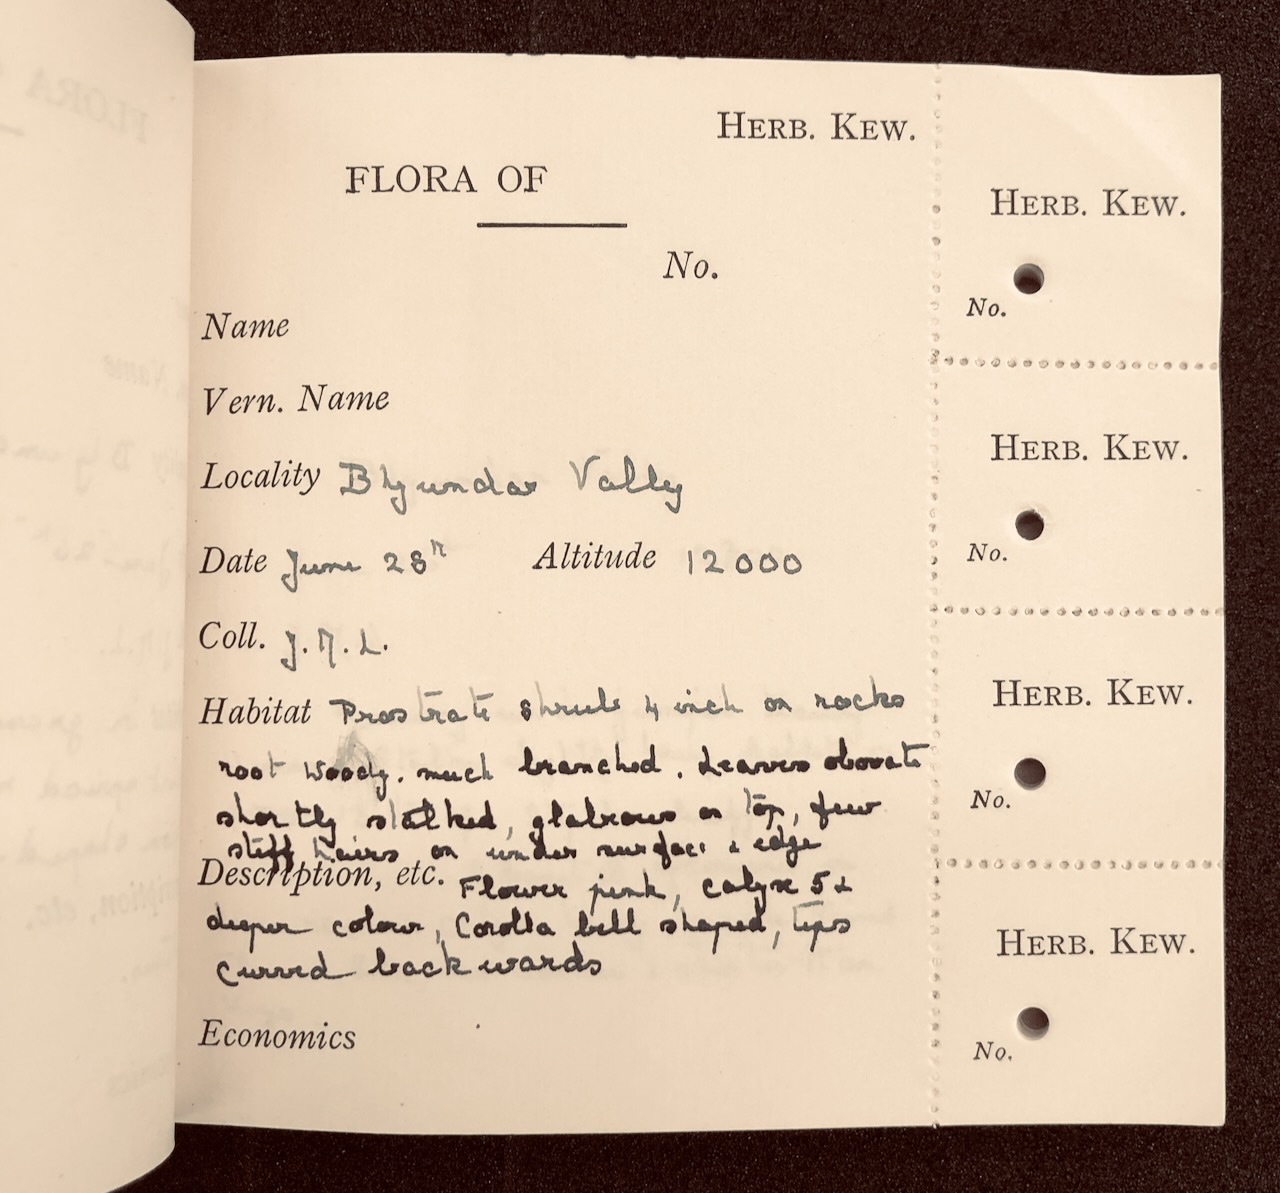 HERB. KEW.
FLORA OF
No.
Name
Vern. Name
Locality Bhyundar Valley
Date June 28th Altitude 12000
Coll. J.M.L.
Habitat Prostrate shrub 4 inch on rocks
root woody. much branched. Leaves obovate
shortly stalked, glabrous on top, few
stiff hairs on under surface & edge
Description, etc. Flower pink, Calyx 5
deeper colour, Corolla bell shaped, tips
curved backwards
Economics
HERB. KEW.
No.
HERB. KEW.
No.
HERB. KEW.
No.
HERB. KEW.
No.
FLORA